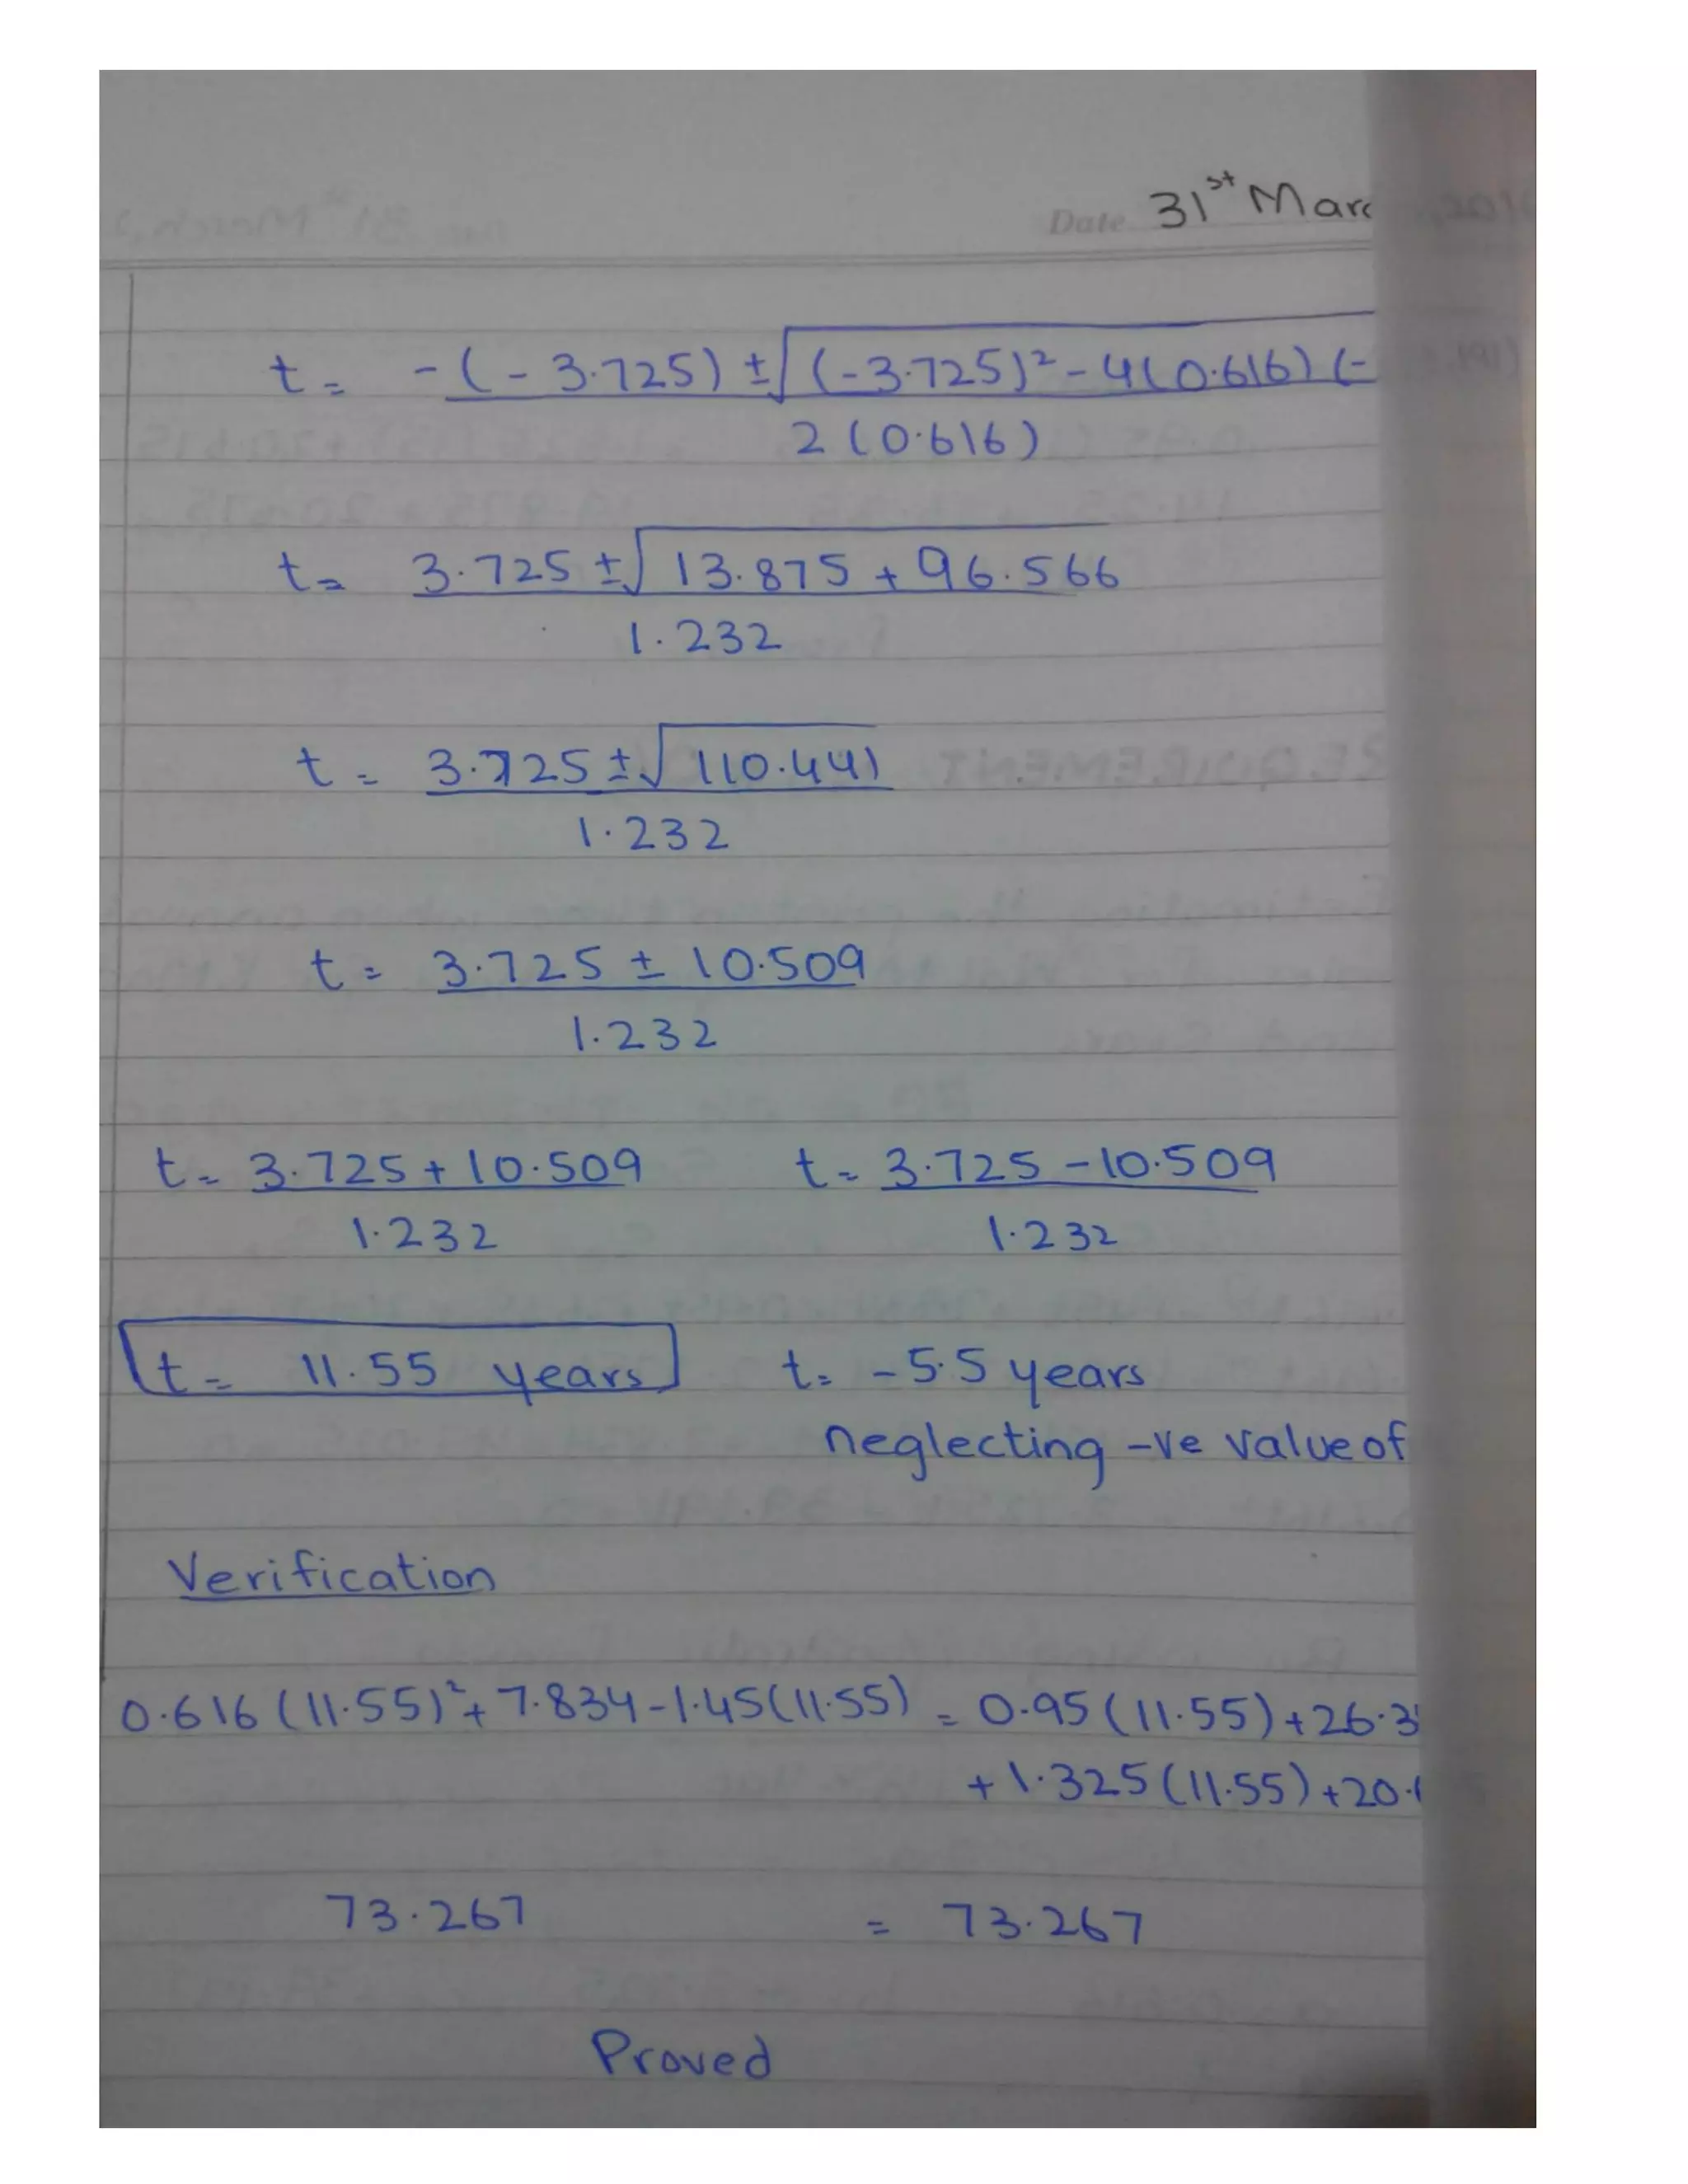 Date 31st Marc
t = -(-3.725) ± √(-3.725)² - 4(0.616)(-
2(0.616)
t = 3.725 ± √13.875 + 96.566
1.232
t = 3.725 ± √110.441
1.232
t = 3.725 ± 10.509
1.232
t = 3.725 + 10.509 t = 3.725 - 10.509
1.232 1.232
t = 11.55 years t = -5.5 years
neglecting -ve value of
Verification
0.616(11.55)² + 7.834 - 1.45(11.55) = 0.95(11.55) + 26.3
+ 1.325(11.55) + 20.
73.267 = 73.267
Proved